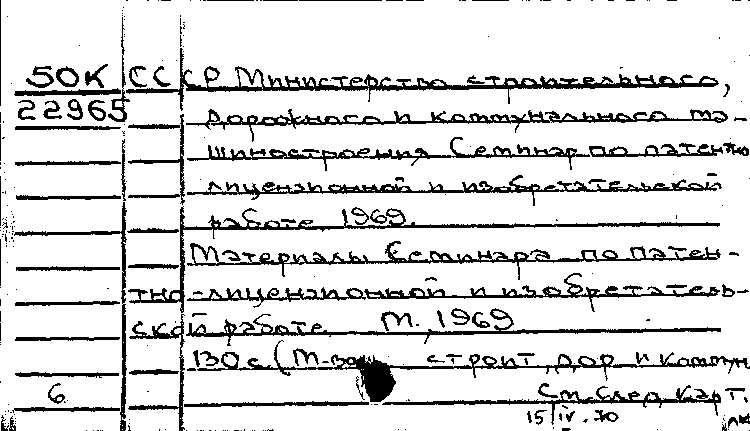 50К СССР Министерство строительного,
22965 дорожного и коммунального ма-
шиностроения Семинар по патентно
лицензионной и изобретательской
работе. 1969.
Материалы Семинара по патен-
тно-лицензионной и изобретатель-
ской работе. М., 1969
130 с. (М-во строит, дор и коммун
6 См. след карт.
15/IV.70